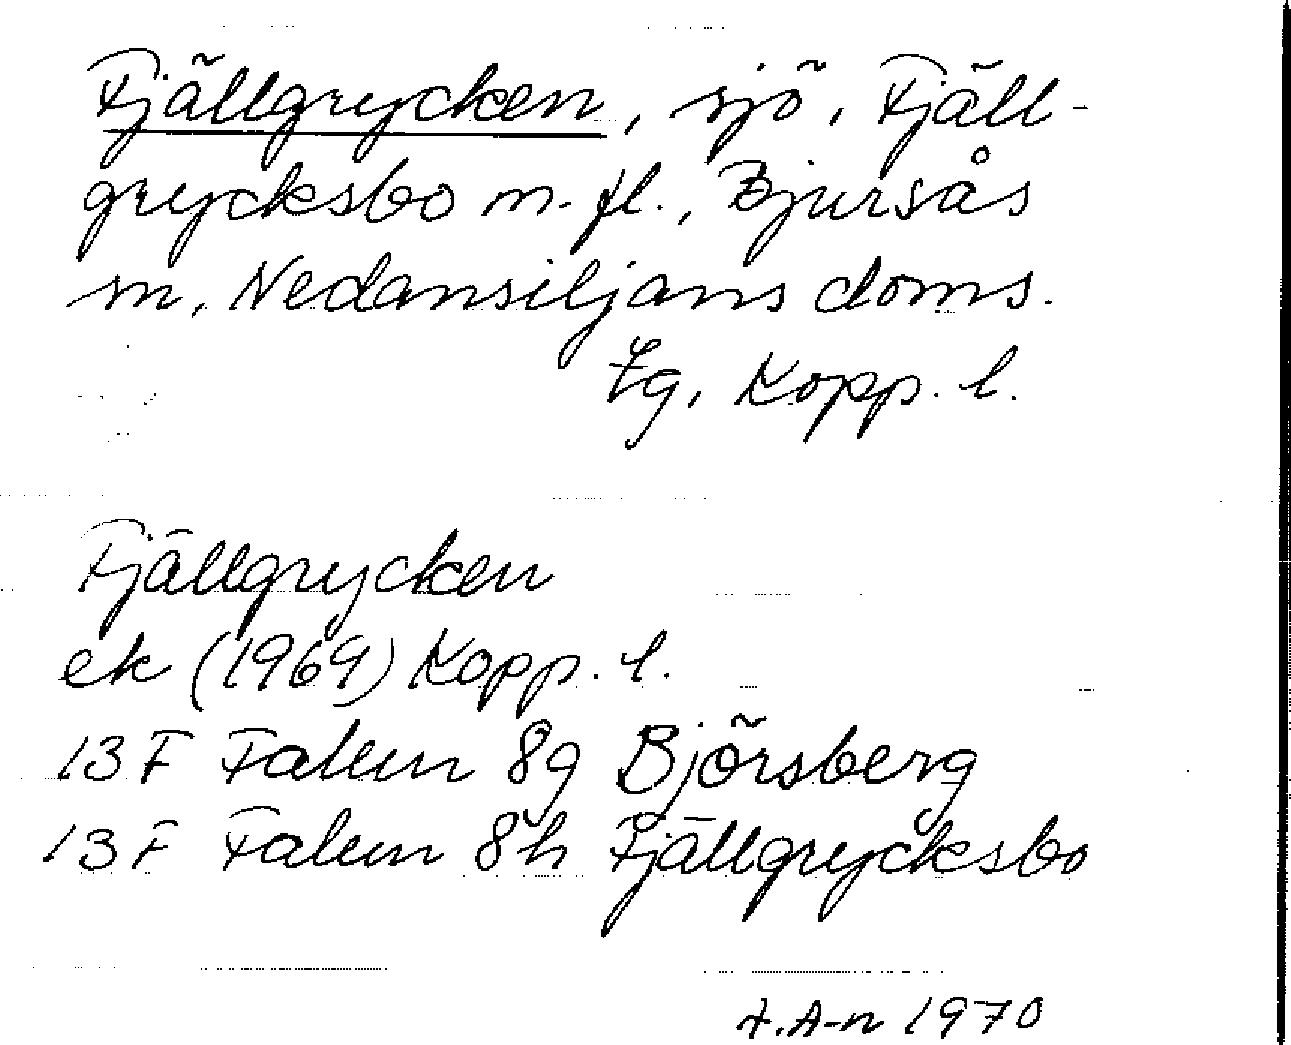 Fjällgrycken, sjö, Fjäll-
grycksbo m. fl., Bjursås
sn, Nedansiljans doms.
tg, Kopp. l.
Fjällgrycken
ek (1969) Kopp. l.
13 F Falun 8g Björsberg
13 F Falun 8h Fjällgrycksbo
A-n 1970